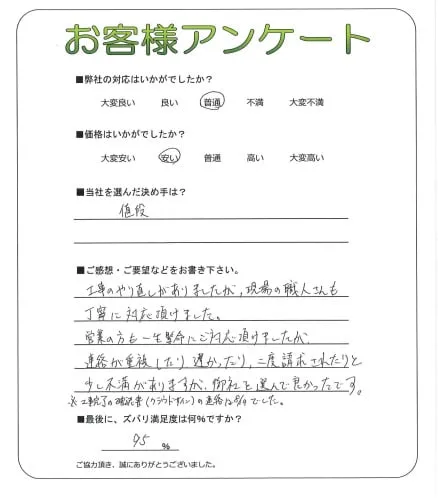 お客様アンケート
■弊社の対応はいかがでしたか？
大変良い 良い 普通 不満 大変不満
■価格はいかがでしたか？
大変安い 安い 普通 高い 大変高い
■当社を選んだ決め手は？
値段
■ご感想・ご要望などをお書き下さい。
工事のやり直しがありましたが、現場の職人さんも
丁寧に対応頂けました。
営業の方も一生懸命にご対応頂けましたが、
連絡が重複したり遅かったり、二度請求されたりと
少し不満がありますが、御社を選んで良かったです。
※工事完了の確認書(クラウドサイン)の連絡は でした。
■最後に、ズバリ満足度は何%ですか？
95 %
ご協力頂き、誠にありがとうございました。